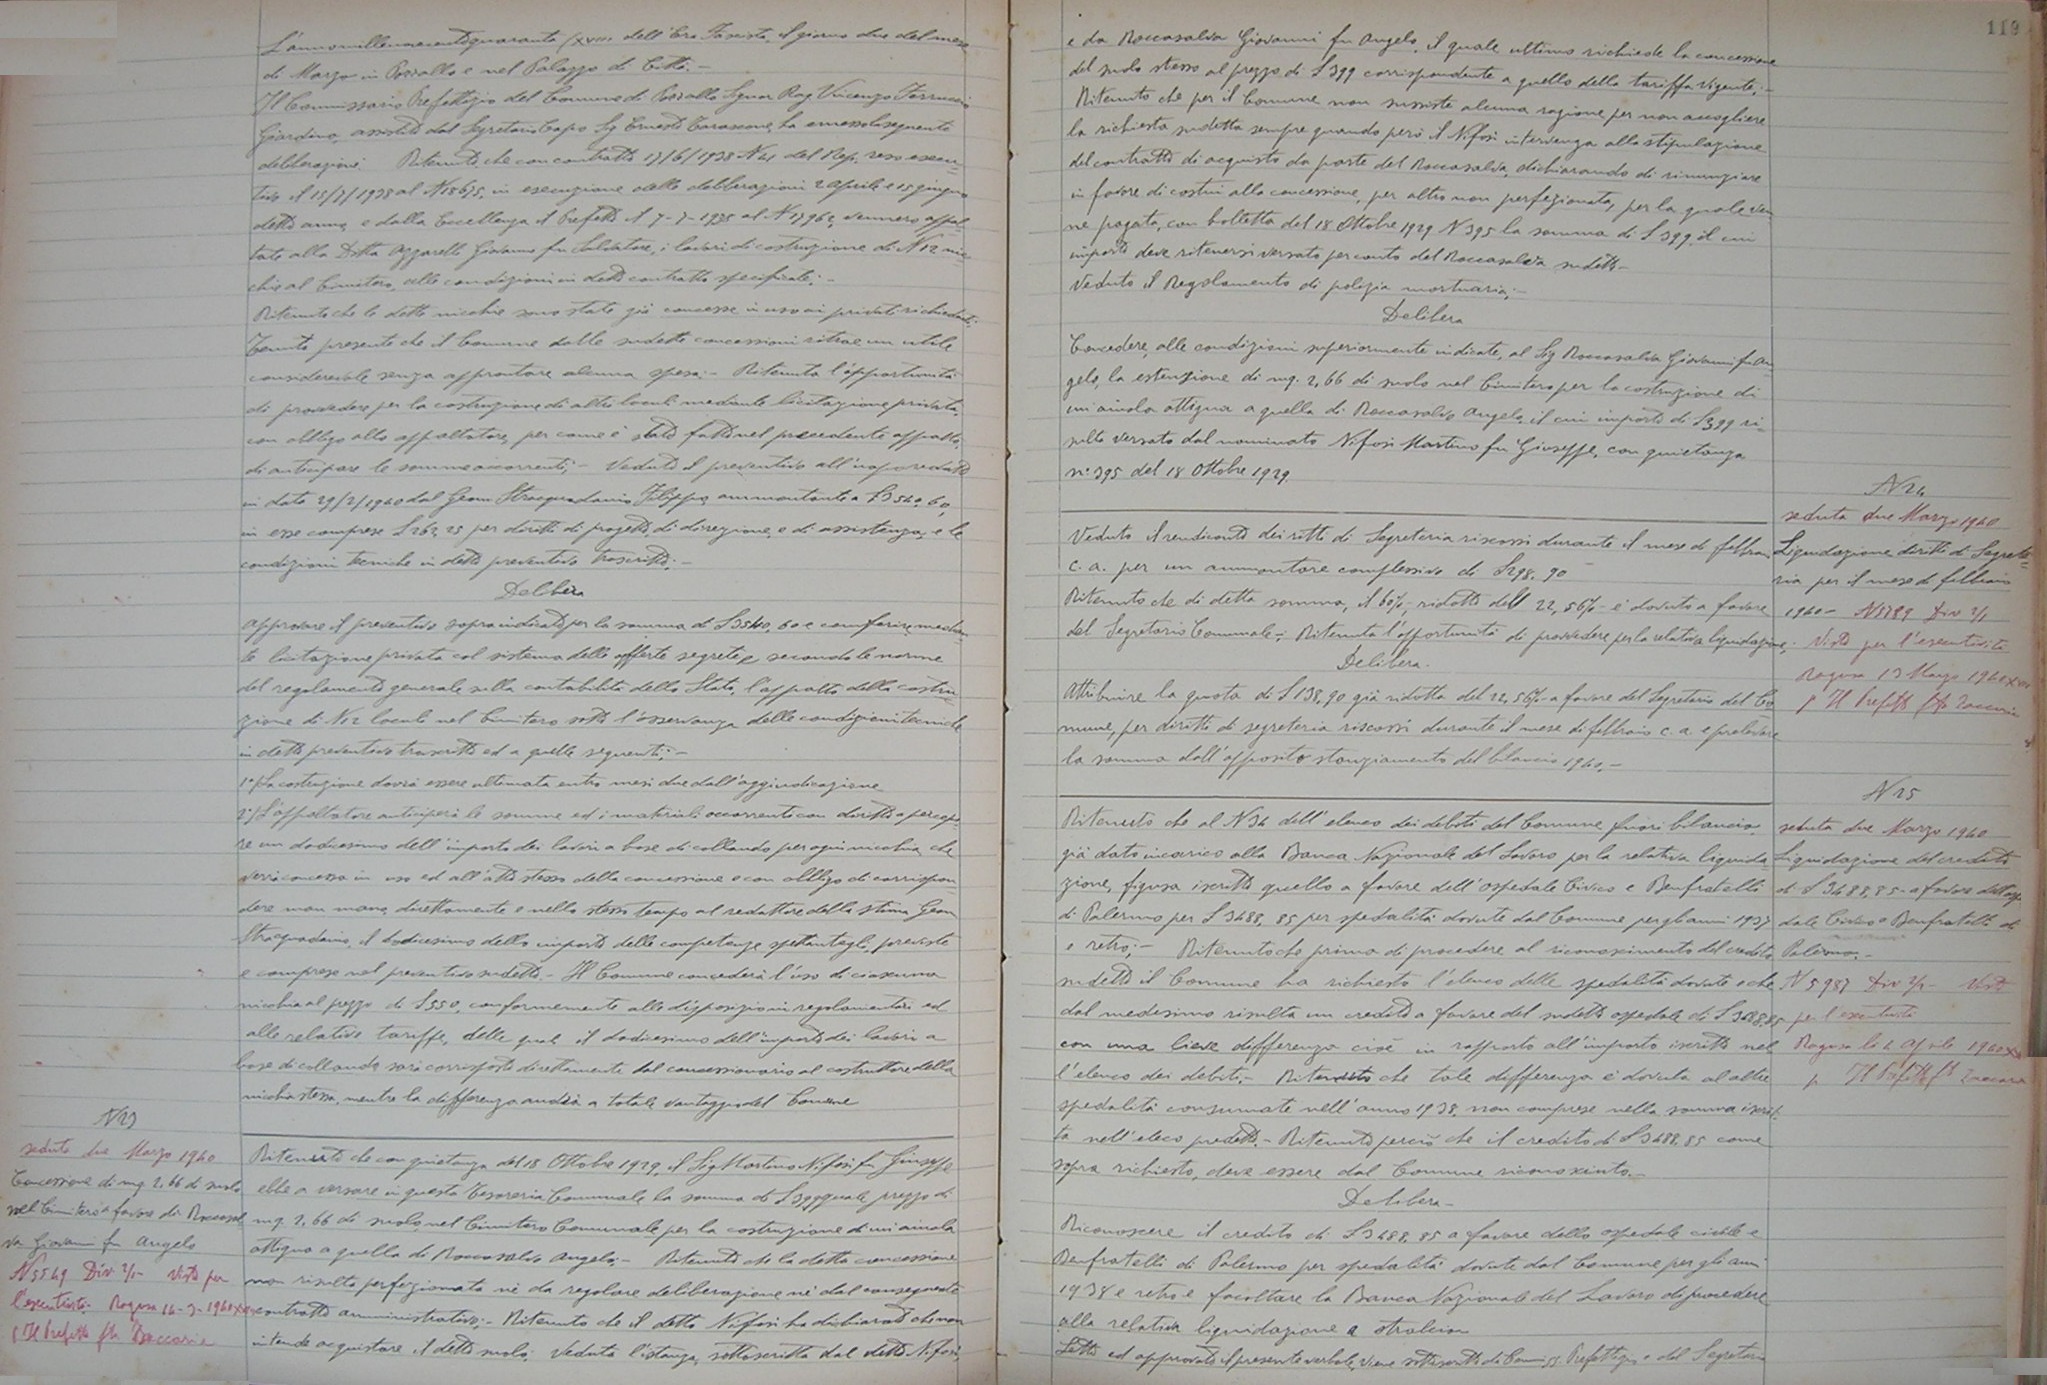 L'annomillenovecentoquaranta (XVIII) dell'Era Fascista, il giorno due del mese
di Marzo in Pozzallo e nel Palazzo di Città.-
Il Commissario Prefettizio del Comune di Pozzallo Signor Rag Vincenzo Ferruccio
Giardina, assistito dal Segretario Capo Sig Ernesto Tarascone, ha emesso la seguente
deliberazione. Ritenuto che con contratto 17/6/1938 N 41 del Rep, reso esecu-
tivo il 15/7/1938 al N 18675, in esecuzione delle deliberazioni 2 aprile e 15 giugno
detto anno, e dalla Eccellenza il Prefetto il 7-7-1938 al N 17962, vennero appal-
tate alla Ditta Azzarelli Giovanni fu Salvatore, i lavori di costruzione di N 12 nic-
chie al Cimitero, alle condizioni in detto contratto specificate;-
Ritenuto che le dette nicchie sono state già concesse in uso ai privati richiedenti.
Tenuto presente che il Comune dalle sudette concessioni ritrae un utile
considerevole senza approntare alcuna spesa;- Ritenuta l'opportunità
di provvedere per la costruzione di altri loculi mediante licitazione privata,
con obbligo allo appaltatore, per come è stato fatto nel precedente appalto,
di anticipare le somme occorrenti;- Veduto il preventivo all'uopo redatto
in data 29/2/1940 dal Geom Stracquadanio Filippo, ammontante a £ 3540,60,
in esse comprese £ 262,25 per diritti di progetto, di direzione, e di assistenza, e le
condizioni tecniche in detto preventivo trascritto;-
Delibera
Approvare il preventivo sopraindicato per la somma di £ 3540,60 e conferire, median-
te licitazione privata col sistema delle offerte segrete, e secondo le norme
del regolamento generale sulla contabilità dello Stato, l'appalto della costru-
zione di N 12 loculi nel Cimitero sotto l'osservanza delle condizioni tecniche
in detto preventivo trascritto ed a quelle seguenti;-
1°) La costruzione dovrà essere ultimata entro mesi due dall'aggiudicazione
2°) L'appaltatore anticiperà le somme ed i materiali occorrenti con diritto a percepi-
re un dodicesimo dell'importo dei lavori a base di collaudo per ogni nicchia che
verrà concessa in uso ed all'atto stesso della concessione e con obbligo di corrispon-
dere man mano, direttamente e nello stesso tempo al redattore della stima Geom
Stracquadaino, il dodicesimo dello importo delle competenze spettantegli, previste
e comprese nel preventivo sudetto.- Il Comune concederà l'uso di ciascuna
nicchia al prezzo di £ 550, conformemente alle disposizioni regolamentari ed
alle relative tariffe, delle quali il dodicesimo dell'importo dei lavori a
base di collaudo sarà corrisposto direttamente dal concessionario al costruttore della
nicchia stessa, mentre la differenza andrà a totale vantaggio del Comune
N 23
seduta due Marzo 1940
Concessione di mq 2,66 di suolo
nel Cimitero a favore di Roccasal
va Giovanni fu Angelo
N 5549 Div 2/1- Visto per
l'esecutività. Ragusa 14-3-1940 XVIII
p Il Prefetto fto Zaccaria
Ritenuto che con quietanza del 18 Ottobre 1929, il Sig Martino Nifosi fu Giuseppe
ebbe a versare in questa Tesoreria Comunale la somma di £ 399 quale prezzo di
mq. 2,66 di suolo nel Cimitero Comunale per la costruzione di un'aiuola
attigua a quella di Roccasalva Angelo;- Ritenuto che la detta concessione
non risulta perfezionata né da regolare deliberazione né dal conseguente
contratto amministrativo;- Ritenuto che il detto Nifosi ha dichiarato che non
intende acquistare il detto suolo; Veduta l'istanza, sottoscritta dal detto Nifosi,
119
e da Roccasalva Giovanni fu Angelo, il quale ultimo richiede la concessione
del suolo stesso al prezzo di £ 399 corrispondente a quello della tariffa vigente;-
Ritenuto che per il Comune non sussiste alcuna ragione per non accogliere
la richiesta sudetta sempre quando però il Nifosi intervenga alla stipulazione
del contratto di acquisto da parte del Roccasalva, dichiarando di rinunziare
in favore di costui alla concessione, per altro non perfezionata, per la quale ven
ne pagata, con bolletta del 18 Ottobre 1929 N 395 la somma di £ 399 il cui
importo deve ritenersi versato per conto del Roccasalva sudetto-
Veduto il Regolamento di polizia mortuaria;-
Delibera
Concedere, alle condizioni superiormente indicate, al Sig Roccasalva Giovanni fu An
gelo, la estensione di mq. 2,66 di suolo nel Cimitero per la costruzione di
un'aiuola attigua a quella di Roccasalva Angelo, il cui importo di £ 399 ri-
sulta versato dal nominato Nifosi Martino fu Giuseppe, con quietanza
n° 395 del 18 Ottobre 1929
N 24
seduta due Marzo 1940
Liquidazione diritti di Segrete-
ria per il mese di febbraio
1940- N 5789 Div 2/1
Visto per l'esecutività
Ragusa 13 Marzo 1940 XVIII
p Il Prefetto fto Zaccaria
Veduto il rendiconto dei ritti di Segreteria riscossi durante il mese di febbraio
c.a. per un ammontare complessivo di £ 298,90
Ritenuto che di detta somma, il 60%, ridotto dell 22,56%- è dovuto a favore
del Segretario Comunale;- Ritenuta l'opportunità di provvedere per la relativa liquidazione;
Delibera.
Attribuire la quota di £ 138,90 già ridotta del 22,56% a favore del Segretario del Co
mune, per diritti di segreteria riscossi durante il mese di febbraio c.a. e prelevare
la somma dall'apposito stanziamento del bilancio 1940.-
N 25
seduta due Marzo 1940
Liquidazione del credito
di £ 3488,85- a favore dell'ospe
dale Civico e Benfratelli di
Palermo.-
N 5987 Div 2/1- Visto
per l'esecutività
Ragusa lì 4 aprile 1940 XVIII
p Il Prefetto fto Zaccaria
Ritenuto che al N 34 dell'elenco dei debiti del Comune fuori bilancio,
già dato incarico alla Banca Nazionale del Lavoro per la relativa liquida
zione, figura iscritto quello a favore dell'ospedale Civico e Benfratelli
di Palermo per £ 3488,85 per spedalità dovute dal Comune per gli anni 1937
e retro;- Ritenuto che prima di procedere al riconoscimento del credito
sudetto il Comune ha richiesto l'elenco delle spedalità dovute e che
dal medesimo risulta un credito a favore del sudetto ospedale di £ 3488,85
con una lieve differenza cioè in rapporto all'importo iscritto nel
l'elenco dei debiti.- Ritenuto che tale differenza è dovuta al altre
spedalità consumate nell'anno 1938, non comprese nella somma iscrit-
ta nell'eleco predetto.- Ritenuto perciò che il credito di £ 3488,85 come
sopra richiesto, deve essere dal Comune riconosciuto.-
Delibera-
Riconoscere il credito di £ 3488,85 a favore dello ospedale civile e
Benfratelli di Palermo per spedalità dovute dal Comune per gli anni
1938 e retro e facoltare la Banca Nazionale del Lavoro di procedere
alla relativa liquidazione a stralcio
Letto ed approvato il presente verbale, viene sottoscritto dal Comm Prefettizio e dal Segretario